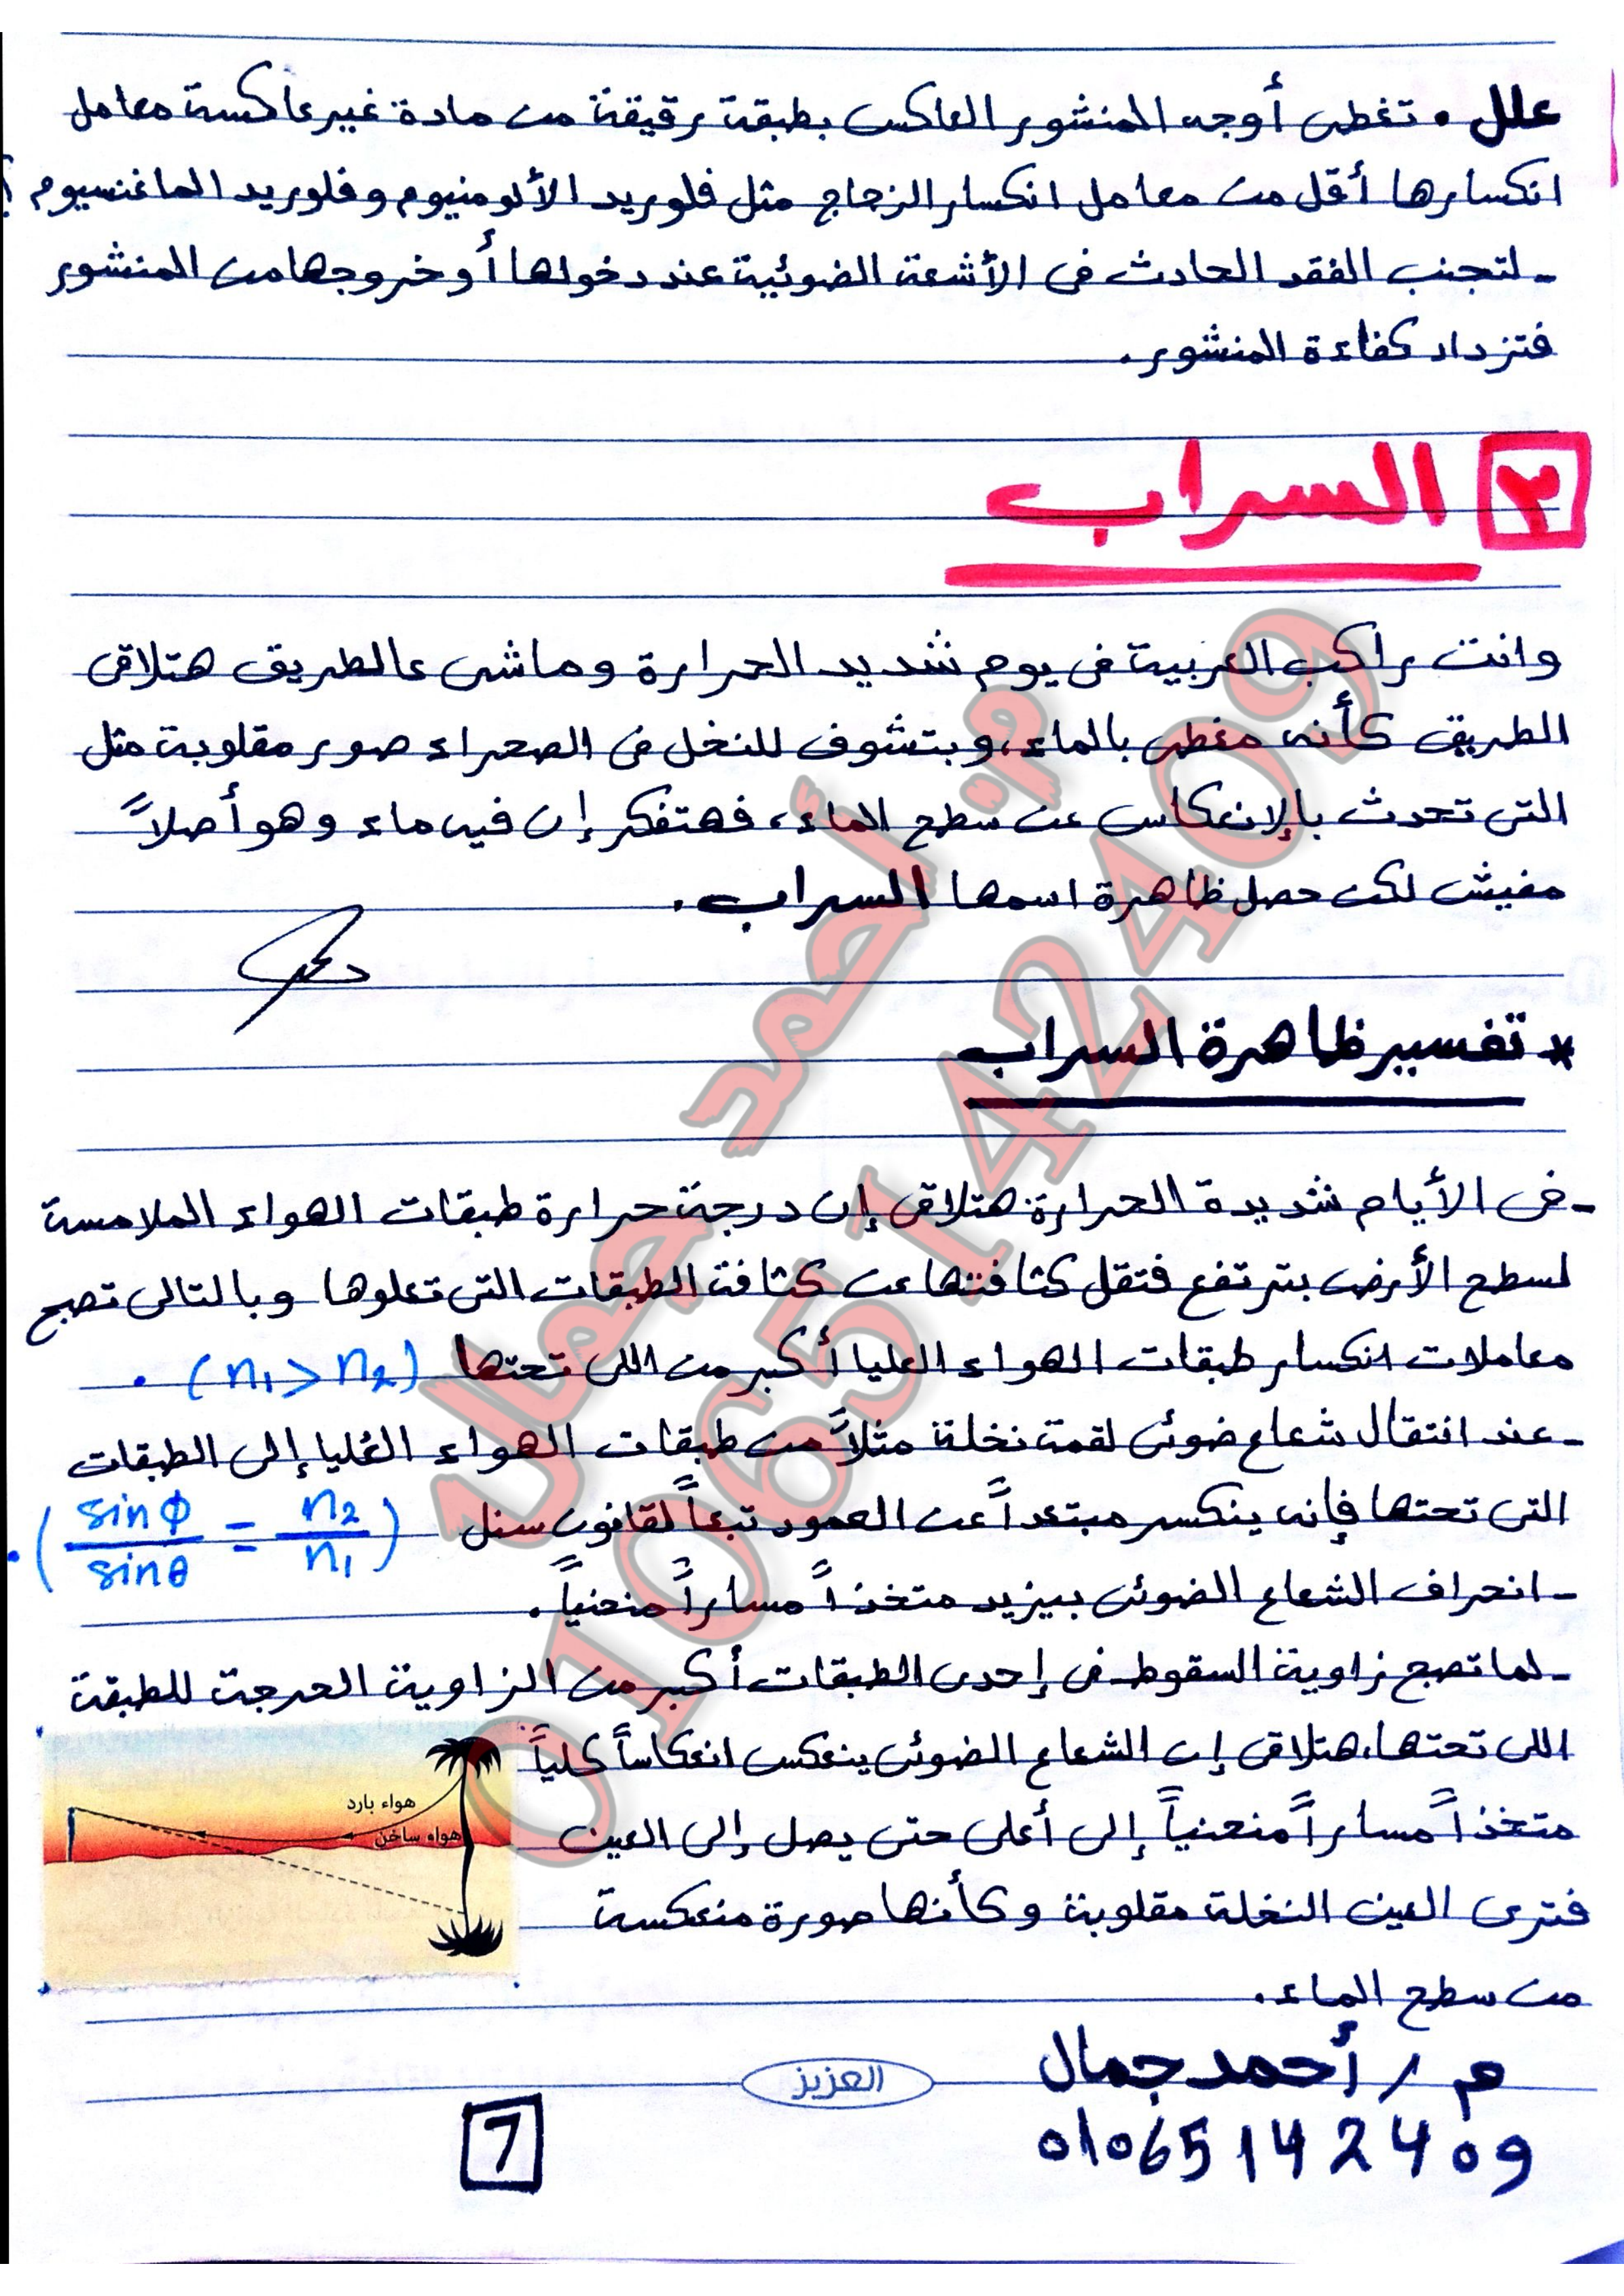 علل . تغطى أوجه المنشور العاكس بطبقة رقيقة من مادة غير عاكسة معامل
انكسارها أقل من معامل انكسار الزجاج مثل فلوريد الألومنيوم وفلوريد الماغنسيوم ؟
- لتجنب الفقد الحادث فى الأشعة الضوئية عند دخولها أو خروجها من المنشور
فتزداد كفاءة المنشور.
٣ السراب
وانت راكب العربية فى يوم شديد الحرارة وماشى عالطريق هتلاقى
الطريق كأنه مغطى بالماء، وبتشوف للنخل فى الصحراء صور مقلوبة مثل
التى تحدث بالإنعكاس عن سطح الماء، فهتفكر إن فيه ماء وهو أصلاً
مفيش لكن حصل ظاهرة اسمها السراب.
* تفسير ظاهرة السراب
- فى الأيام شديدة الحرارة هتلاقى إن درجة حرارة طبقات الهواء الملامسة
لسطح الأرض بترتفع فتقل كثافتها عن كثافة الطبقات التى تعلوها وبالتالى تصبح
معاملات انكسار طبقات الهواء العليا أكبر من اللى تحتها (n1 > n2) .
- عند انتقال شعاع ضوئى لقمة نخلة مثلاً من طبقات الهواء العُليا إلى الطبقات
التى تحتها فإنه ينكسر مبتعداً عن العمود تبعاً لقانون سنل (sinϕ/sinθ = n2/n1) .
- انحراف الشعاع الضوئى بيزيد متخذاً مساراً منحنياً.
- لما تصبح زاوية السقوط فى إحدى الطبقات أكبر من الزاوية الحرجة للطبقة
اللى تحتها، هتلاقى إن الشعاع الضوئى ينعكس انعكاساً كلياً
متخذاً مساراً منحنياً إلى أعلى حتى يصل إلى العين
فترى العين النخلة مقلوبة وكأنها صورة منعكسة
من سطح الماء.
هواء بارد
هواء ساخن
م / أحمد جمال
01065142409
العزيز
7
م/ أحمد جمال
01065142409